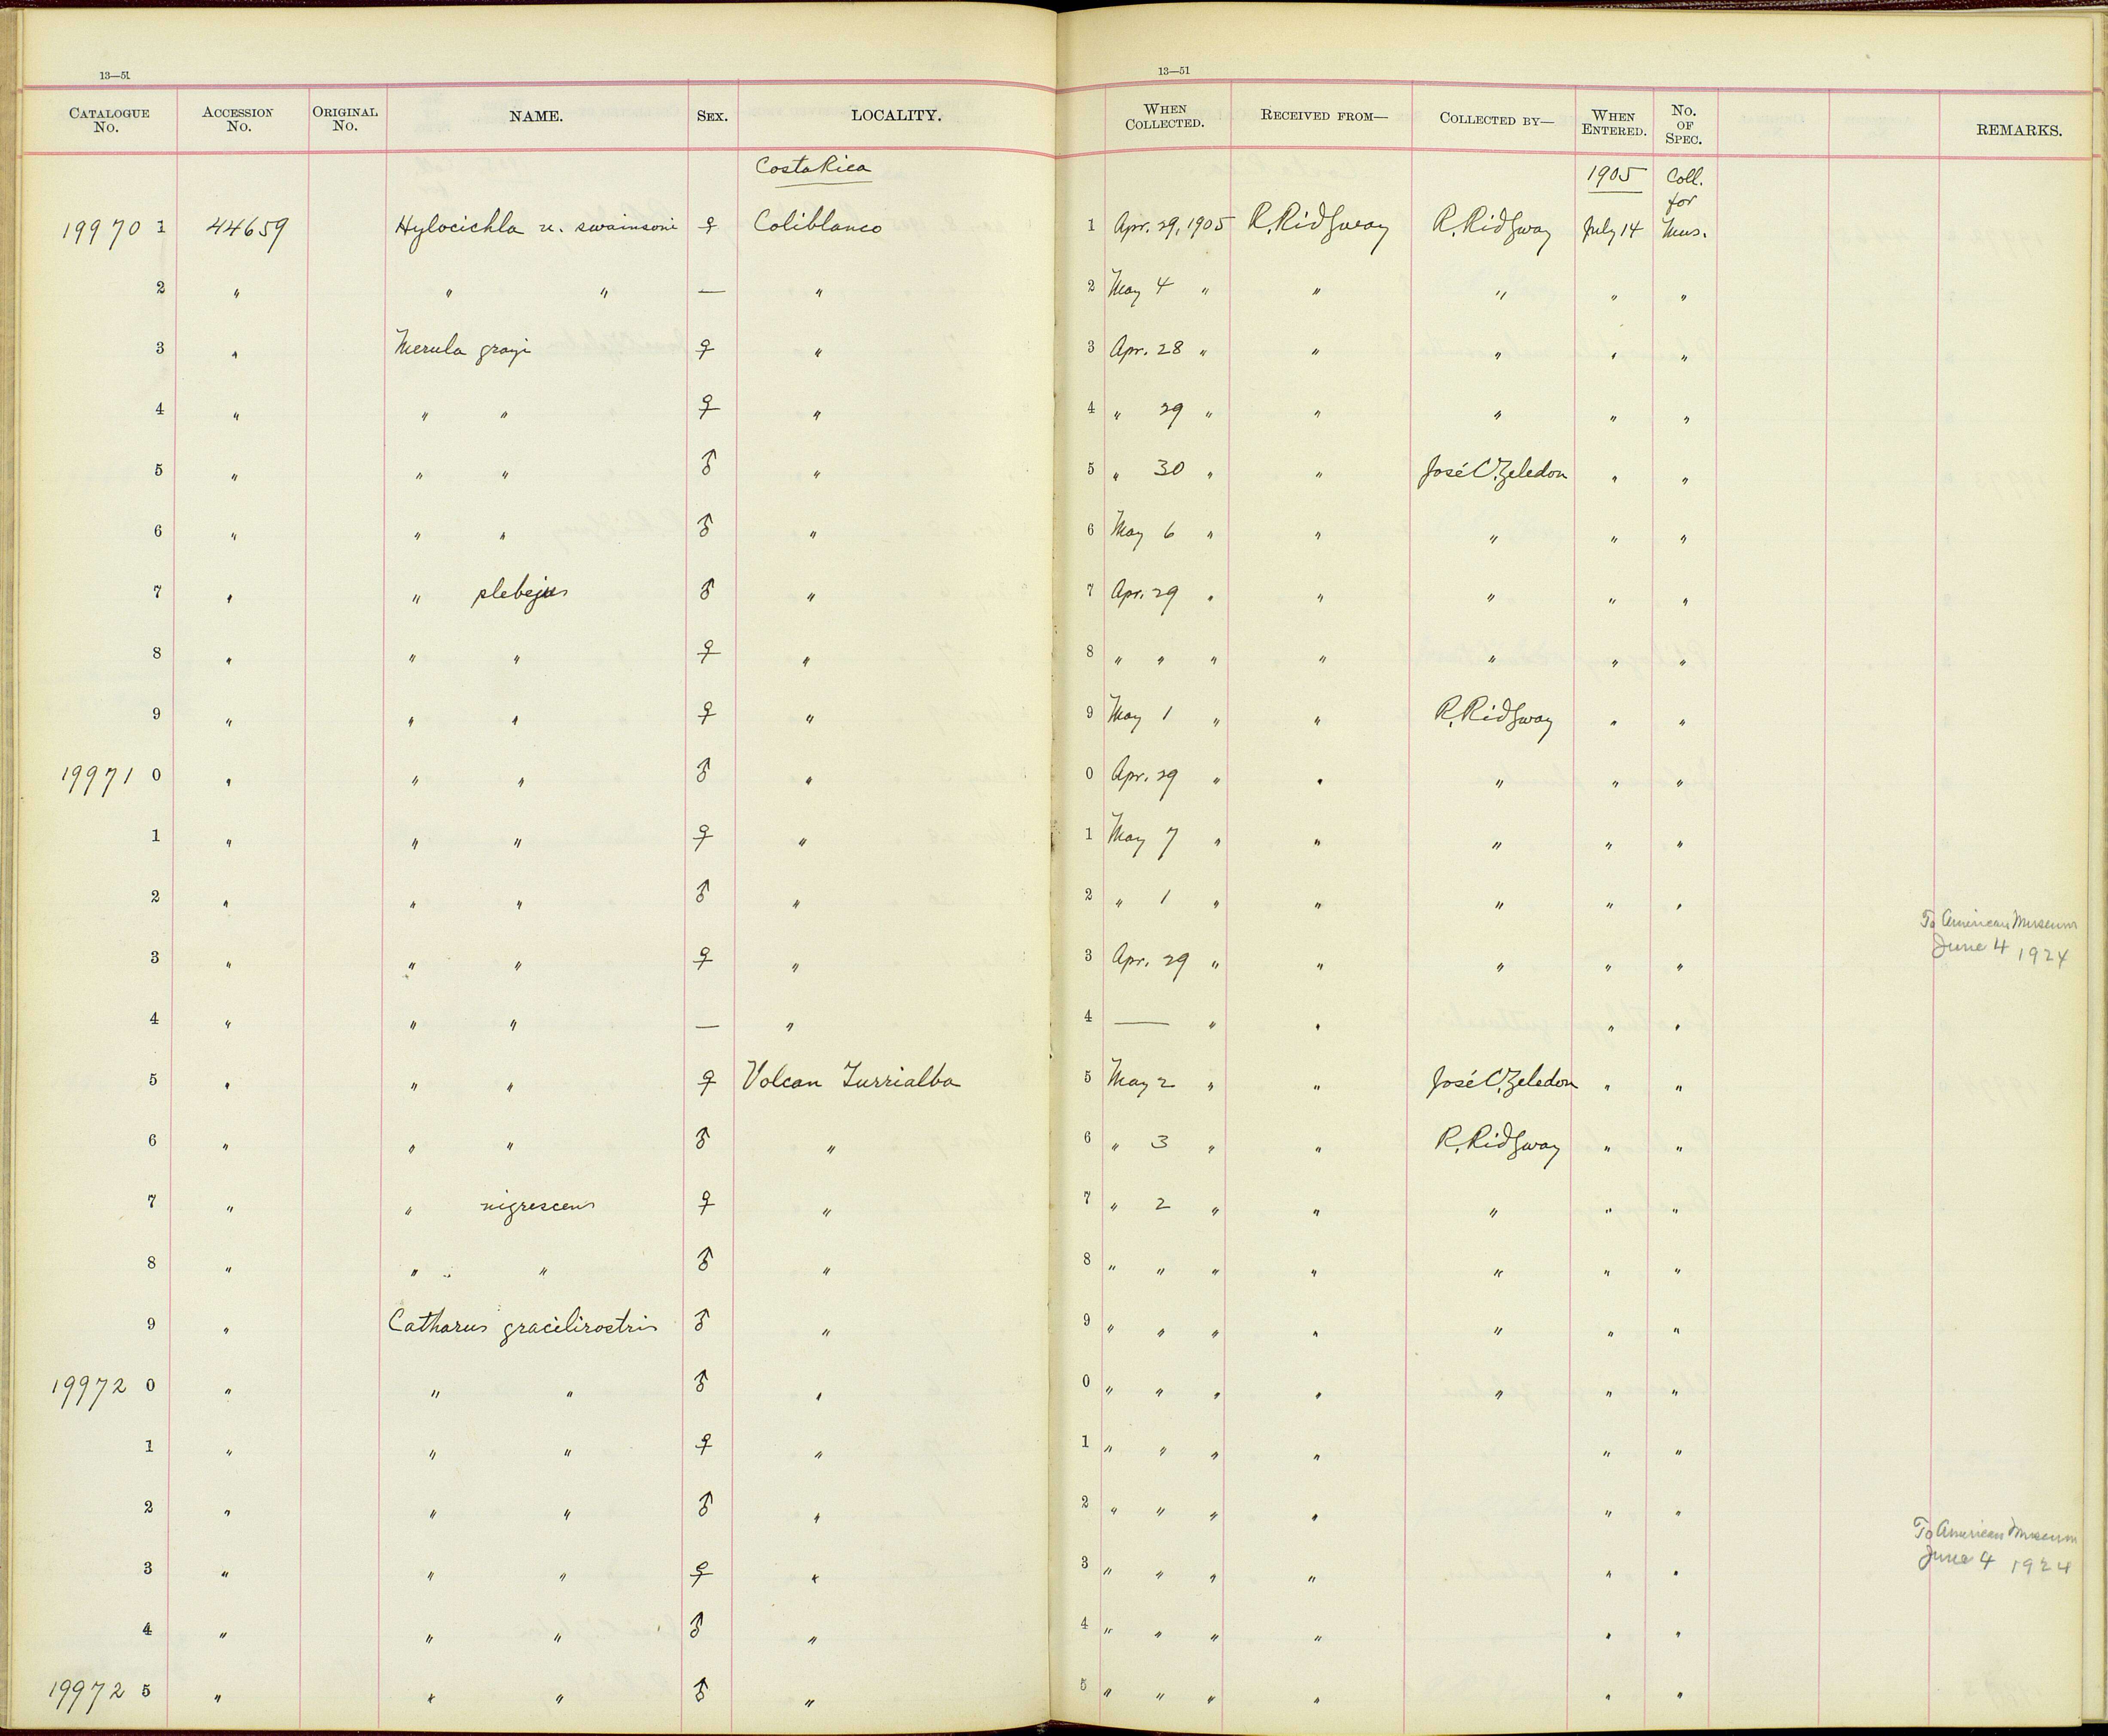 13—51
13—51
CATALOGUE No. ACCESSION No. ORIGINAL No. NAME. SEX. LOCALITY. WHEN COLLECTED. RECEIVED FROM— COLLECTED BY— WHEN ENTERED. No. OF SPEC. REMARKS.
Costa Rica 1905 Coll. for
19970 1 44659 Hylocichla u. swainsonii ♀ Coliblanco 1 Apr. 29, 1905 R. Ridgway R. Ridgway July 14 Mus.
2 " " " — " 2 May 4 " " " " "
3 " Merula grayi ♀ " 3 Apr. 28 " " " " "
4 " " " ♀ " 4 " 29 " " " " "
5 " " " ♂ " 5 " 30 " " José C. Zeledon " "
6 " " " ♂ " 6 May 6 " " " " "
7 " " plebejus ♂ " 7 Apr. 29 " " " " "
8 " " " ♀ " 8 " " " " " " "
9 " " " ♀ " 9 May 1 " " R. Ridgway " "
19971 0 " " " ♂ " 0 Apr. 29 " " " " "
1 " " " ♀ " 1 May 7 " " " " "
2 " " " ♂ " 2 " 1 " " " " "
To American Museum
3 " " " ♀ " 3 Apr. 29 " " " " " June 4 1924
4 " " " — " 4 — " " " "
5 " " " ♀ Volcan Turrialba 5 May 2 " " José C. Zeledon " "
6 " " " ♂ " 6 " 3 " " R. Ridgway " "
7 " " nigrescens ♀ " 7 " 2 " " " " "
8 " " " ♂ " 8 " " " " " " "
9 " Catharus gracilirostris ♂ " 9 " " " " " " "
19972 0 " " " ♂ " 0 " " " " " " "
1 " " " ♀ " 1 " " " " " "
2 " " " ♂ " 2 " " " " " "
To American Museum
3 " " " ♀ " 3 " " " " " " June 4 1924
4 " " " ♂ " 4 " " " " " "
19972 5 " " " ♂ " 5 " " " " " "